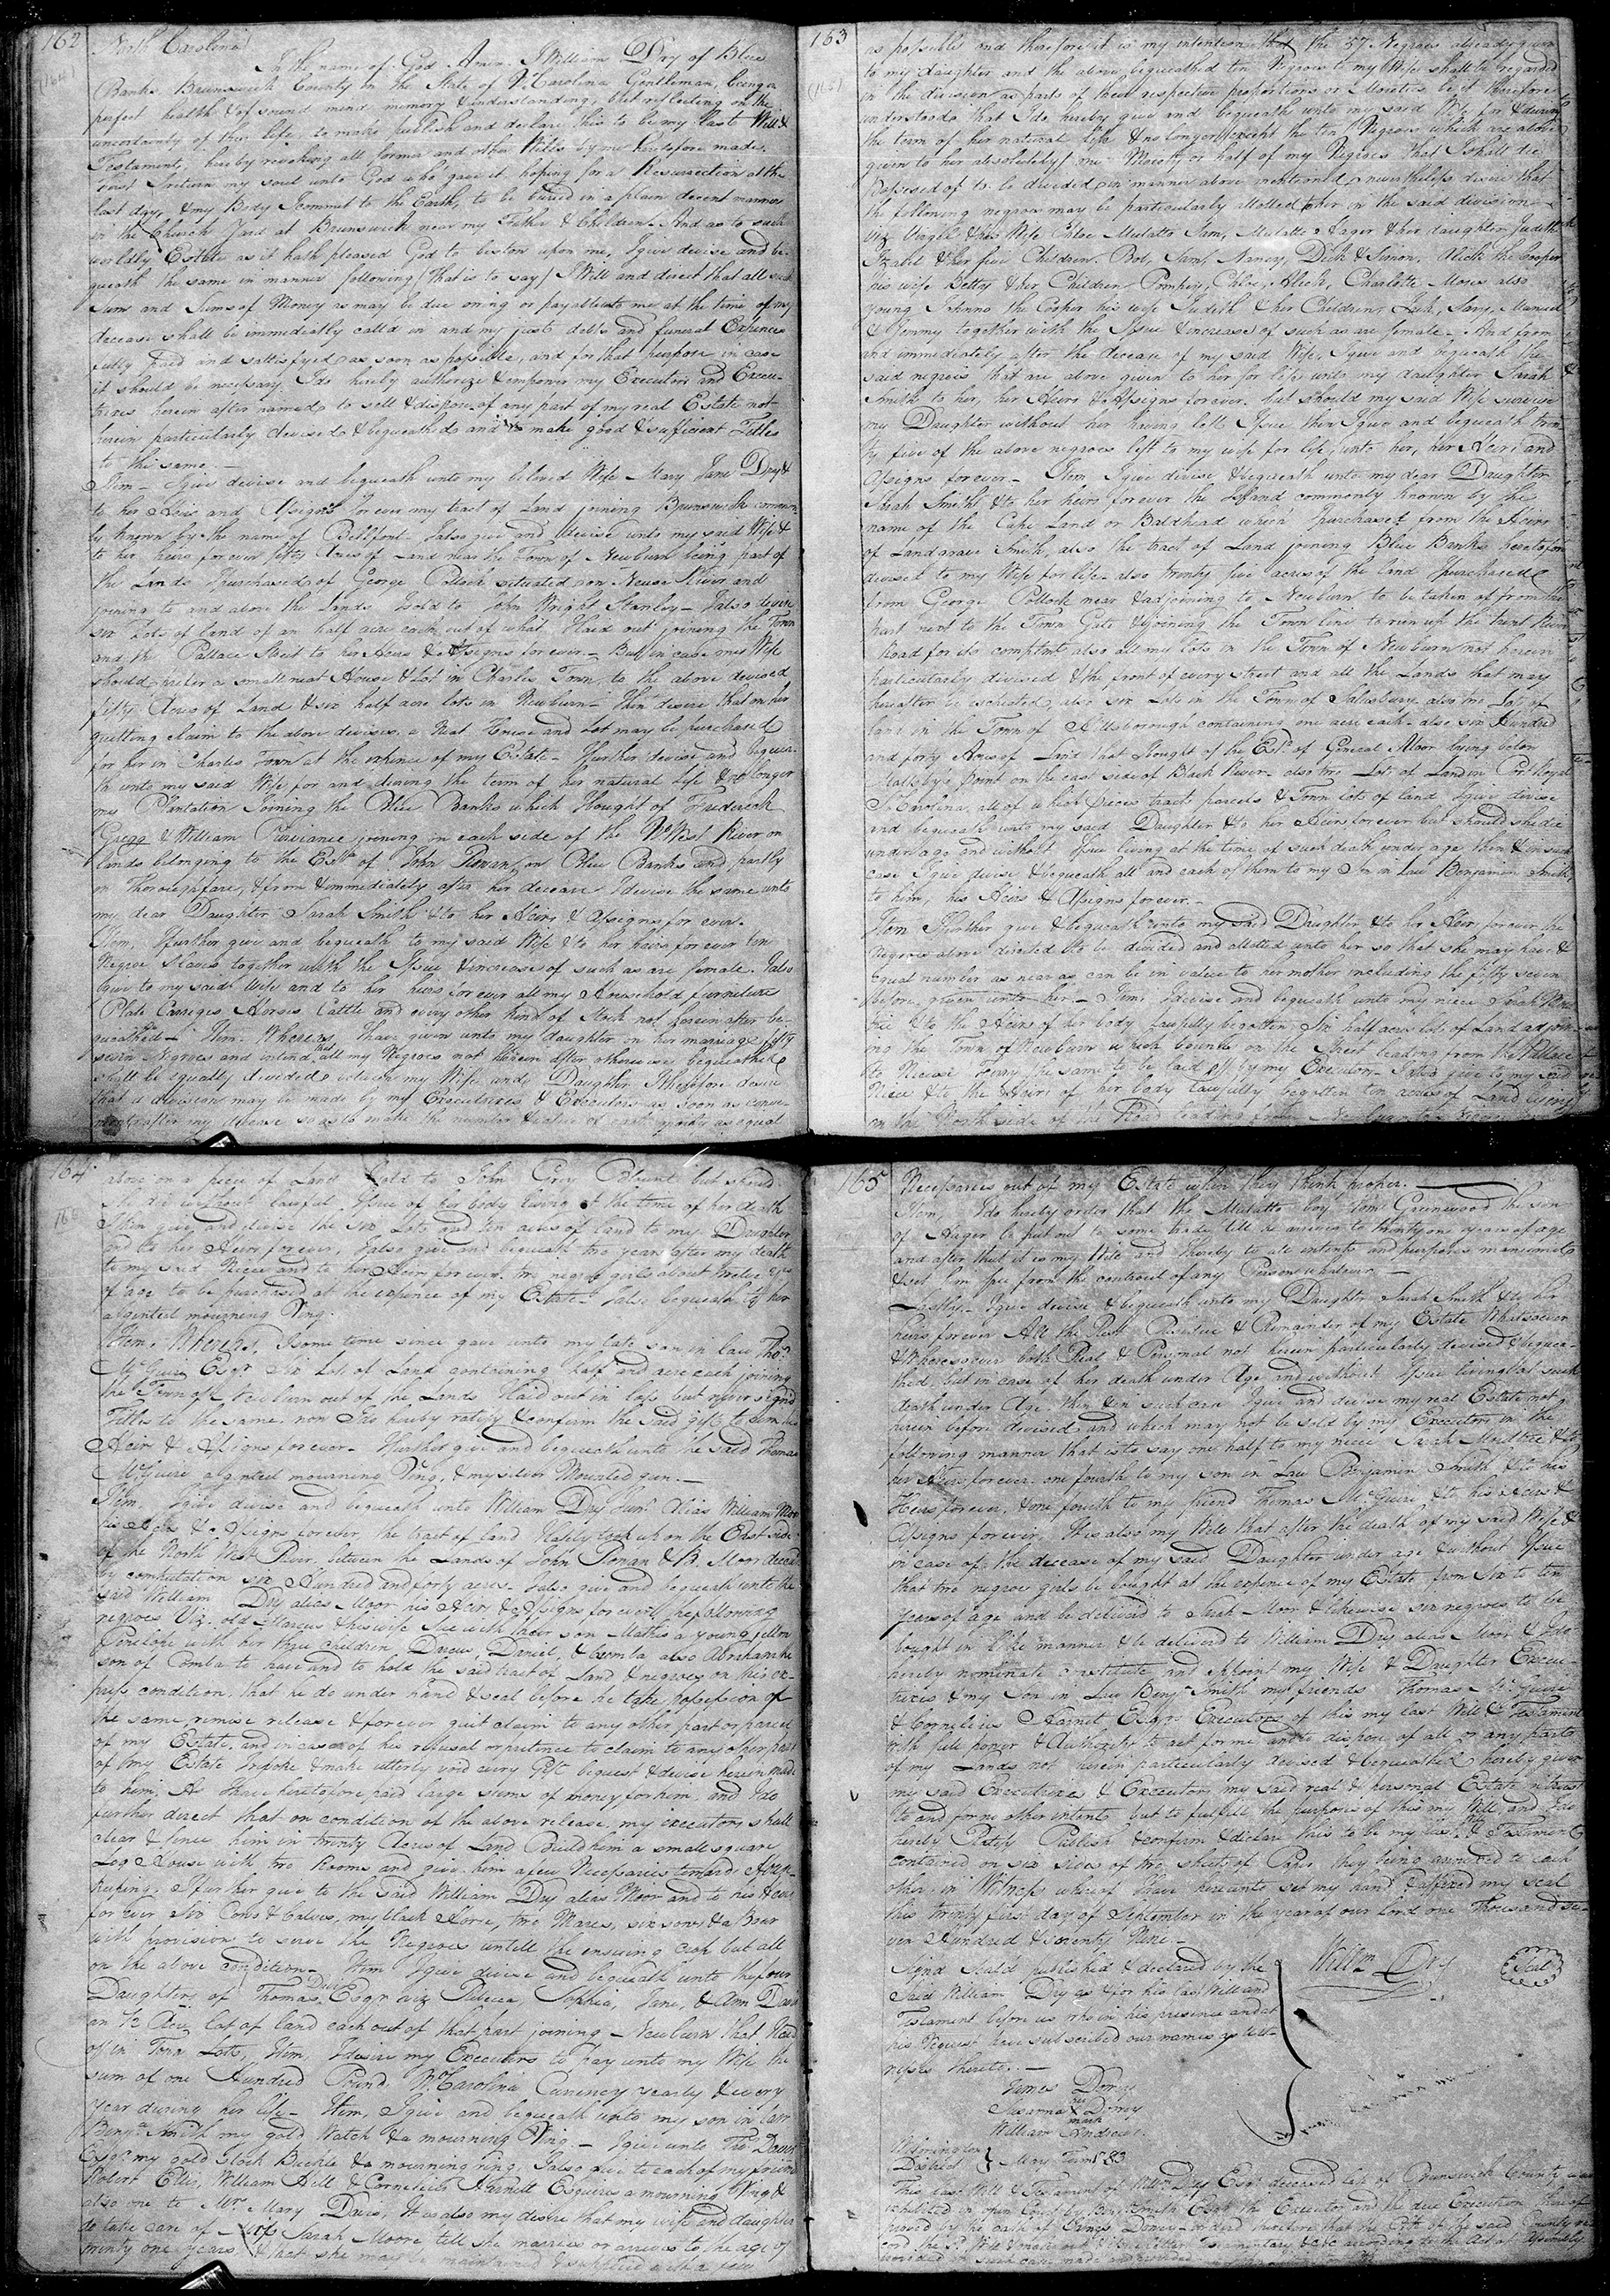 162
North Carolina
In the name of God Amen I William Dry of Blue
Banks Brunswick County in the State of N. Carolina Gentleman, being in
perfect health & of sound mind memory & understanding, but reflecting on the
uncertainty of this life to make publish and declare this to be my last Will &
Testament, hereby revoking all former and other Wills by me heretofore made.
First I return my soul unto God who gave it hoping for a Resurrection at the
last day, & my Body I commit to the Earth, to be buried in a plain decent manner
in the Church Yard at Brunswick near my Father & Children. And as to such
worldly Estate as it hath pleased God to bestow upon me, I give devise and be-
queath the same in manner following (that is to say) I Will and direct that all such
Sum and Sums of Money as may be due owing or payable unto me at the time of my
decease shall be immediatly call'd in and my just debts and funeral Expences
fully paid and sattisfyed as soon as possible, and for that purpose in case
it should be necessary I do hereby authorize & empower my Executors and Execu-
trixes herein after named to sell & dispose of any part of my real Estate not
herein particularly devised & bequeathed and to make good & sufficient Titles
to the same.
Item I give devise and bequeath unto my beloved Wife Mary Jane Dry &
to her Heirs and Assigns forever my tract of Land joining Brunswick common-
ly known by the name of Bellfont. I also give and devise unto my said Wife &
to her heirs forever fifty Acres of Land near the Town of Newburn being part of
the Lands I purchased of George Pollock situated on Neuse River and
joining to and above the Lands I sold to John Wright Stanley I also devise
six Lots of land of an half acre each out of what I laid out joining the Town
and the Pallace Street to her Heirs & Assigns forever. But in case my Wife
should prefer a small neat House & Lot in Charles Town, to the above devised
fifty Acres of Land & six half acre lots in Newburn Then I desire that on her
quitting claim to the above devises, a Neat House and Lot may be purchased
for her in Charles Town at the expence of my Estate I further devise and bequea-
th unto my said Wife for and during the term of her natural life & no longer
my Plantation Joining the Blue Banks which I bought of Frederick
Gregg & William Purviance joining on each side of the No. West River on
lands belonging to the Este. of John Rowan, on Blue Banks and partly
on Thoroughfare, & from & immediately after her decease I devise the same unto
my dear Daughter Sarah Smith & to her Heirs & Assigns for ever.
Item, I further give and bequeath to my said Wife & to her heirs for ever ten
Negroe Slaves together with the Issue & increase of such as are female. I also
give to my said Wife and to her heirs for ever all my Household furniture
Plate Carriges Horses Cattle and every other kind of Stock not herein after be-
queathed. Item. Whereas I have given unto my daughter on her marriage fifty
seven Negroes and intend that all my Negroes not herein after otherwise bequeathed
shall be equally divided between my Wife and Daughter I therefore desire
that a division may be made by my Executrixes & Executors as soon as conve-
nient after my decease so as to make the number & value of each moiety as equal
163
as possible and therefore it is my intention that the 57 Negroes already given
to my daughter and the above bequeathed ten Negroes to my Wife shall be regarded
in the division as parts of their respective proportions or Moieties be it therefore
understood, that I do hereby give and bequeath unto my said Wife for & during
the term of her natural life & no longer (except the ten Negroes which are above
given to her absolutely) one Moiety or half of my Negroes that I shall die
possessed of to be divided in manner above mentioned, nevertheless desire that
the following negroes may be particularly allotted to her in the said division
viz Virgil & his Wife Chloe Mulatto Sam, Mulatto Hager & her daughter Judith
Izabel & her five Children. Bob, Sam, Nancy, Dick & Simon. Aleck the Cooper
his wife Betty & her Children Pompey, Chloe, Aleck, Charlotte Moses also
young Johnno the Cooper his wife Judith & her Children, Jack, Sary, Manuel
& Jemmy together with the Issue & increase of such as are female. And from
and immediately after the decease of my said Wife, I give and bequeath the
said negroes that are above given to her for life unto my daughter Sarah
Smith to her, her Heirs & Assigns forever. but should my said Wife survive
my Daughter without her having left Issue then I give and bequeath twen-
ty five of the above negroes left to my wife for life, unto her, her Heirs and
Assigns forever. Item I give devise & bequeath unto my dear Daughter
Sarah Smith & to her heirs forever the Island commonly known by the
name of the Cape Land or Baldhead which I purchased from the Heirs
of Landgrave Smith, also the tract of Land joining Blue Banks heretofore
devised to my Wife for life also twenty five acres of the land I purchased
from George Pollock near & adjoining to Newburn to be taken of from the
part next to the Town Gate & joining the Town line to run up the trent River
Road for its complement also all my lots in the Town of Newburn not herein
particularly devised & the front of every street and all the Lands that may
hereafter be escheated, also six Lots in the Town of Salisbury also two Lots of
land in the Town of Hillsborough containing one acre each also six Hundred
and forty Acres of Land that I bought of the Este. of General Moor lying below
point on the east side of Black River also two Lots of Land in Port Royal
S. Carolina, all of which pieces tracts parcels & Town lots of land I give devise
and bequeath unto my said Daughter & to her Heirs forever but should she die
under age and without Issue living at the time of such death under age then & in such
case I give devise & bequeath all and each of them to my Son in Law Benjamin Smith,
to him, his Heirs & Assigns forever.
Item I further give & bequeath unto my said Daughter & to her Heirs forever the
Negroes above directed to be divided and allotted unto her so that she may have &
Equal number as near as can be in value to her mother including the fifty seven
before given unto her. Item I devise and bequeath unto my niece Sarah
& to the Heirs of her body lawfully begotten, Six half acre lots of Land adjoin-
ing the Town of Newburn which bounds on the Street leading from the Pallace
to Neuse Ferry the same to be laid off by my Executors I also give to my said
Niece & to the Heirs of her body lawfully begotten ten acres of Land lying
on the North side of the Road leading from Newburn to
164
above on a piece of Land I sold to John Grey Blount but should
she die without lawful Issue of her body living at the time of her death
I then give and devise the six Lots and ten acres of land to my Daughter
and to her Heirs forever. I also give and bequeath two years after my death
to my said Niece and to her Heirs forever two negroe girls about twelve years
of age to be purchased at the expence of my Estate I also bequeath to her
a genteel mourning Ring.
Item, Whereas, I some time since gave unto my late son in law Thos.
McGuire Esqr Six Lots of Land containing half and acre each joining
the Town of Newburn out of the Lands I laid out in lots but never signd
Titles to the same now I do hereby ratify & confirm the said gift to him his
Heirs & Assigns forever. I further give and bequeath unto the said Thomas
McGuire a genteel mourning Ring, & my silver Mounted gun.
Item. I give devise and bequeath unto William Dry Junr. Alias William Moor
his Heirs & Assigns forever, the tract of land I lately took up on the East side
of the North West River, between the Lands of John Rowan & M. Moor deceased
by computation six Hundred and forty acres. I also give and bequeath unto the
said William Dry alias Moor his Heirs & Assigns forever the following
negroes Viz. old Marcus & his wife Sue with their son Mathis a young fellow
Penelope with her three children Dorcus, Daniel, & Comba also Abraham the
son of Comba to have and to hold the said tract of Land & negroes on this ex-
press condition, that he do under hand & seal before he take possession of
the same, remise release & forever quit claim to any other part or parcel
of my Estate, and in case of his refusal or pretence to claim to any other part
of my Estate I revoke & make utterly void every Gift bequest & devise herein made
to him, As I have heretofore paid large sums of money for him, and I do
further direct that on condition of the above release, my executors shall
clear & fence him in twenty Acres of Land Build him a small square
Log House with two Rooms and give him a few Necessaries towards House
keeping. I further give to the said William Dry alias Moor and to his Heirs
for ever six Cows & Calves, my black Horse, two Mares, six sows & a Boar
with provision to serve the Negroes untill the ensuing crop but all
on the above condition. Item I give devise and bequeath unto the four
Daughters of Thomas Davis Esqr. viz Rebeca, Sophia, Jane, & Ann Davis
an 1/2 Acre lot of land each out of that part joining Newburn that I laid
off in Town Lots, Item, I desire my Executors to pay unto my Wife the
sum of one Hundred Pound No. Carolina Currency yearly & every
year during her life. Item, I give and bequeath unto my son in law
Benja. Smith my gold Watch & a mourning Ring. I give unto Tho. Davis
Esqr. my gold Stock Buckle & a mourning ring, I also give to each of my friends
Robert Ellis, William Hill & Cornelius Harnett Esquires a mourning Ring &
also one to Mrs. Mary Davis, It is also my desire that my wife and daughter
do take care of Miss Sarah Moore till she marries or arrives to the age of
twenty one years & that she may be maintained & supplied with a few
165
Necessaries out of my Estate when they think proper.
Item, I do hereby order that the Mulatto boy Tom Greenwood the son
of Hager be put out to some trade till he arrives to twenty one years of age
and after that it is my Will and I hereby to all intents and purposes manumit
& set him free from the controul of any Person whatever.
Lastly. I give devise & bequeath unto my Daughter Sarah Smith & to her
heirs forever All the Rest Residue & Remainder of my Estate Whatsoever
& Wheresoever both Real & Personal not herein particularly devised & bequea-
thed. but in case of her death under Age and without Issue living at such
death under Age then & in such case I give and devise my real Estate not
herein before devised and which may not be sold by my Executors in the
following manner that is to say one half to my niece Sarah & to
her Heirs forever. one fourth to my son in Law Benjamin Smith & to his
Heirs forever, & one fourth to my friend Thomas McGuire & to his Heirs &
Assigns forever. It is also my Will that after the death of my said Wife &
in case of the decease of my said Daughter under age & without Issue
that two negroe girls be bought at the expence of my Estate from Six to ten
years of age and be deliverd to Sarah Moor & likewise six negroes to be
bought in like manner & be deliverd to William Dry alias Moor & I do
hereby nominate constitute and Appoint my Wife & Daughter Execu-
trixes & my Son in Law Benjn. Smith my friends Thomas McGuire
& Cornelius Harnet Esqrs Executors of this my last Will & Testament
with full power & Authority to act for me and to dispose of all or any parts
of my Lands not herein particularly devised & bequeathed hereby giving
my said Executrixes & Executors my said real & personal Estate in trust
to and for no other intents but to fulfill the purposes of this my Will, and I do
hereby Ratify Publish & confirm & declare this to be my last Will & Testament
contained on six sides of two sheets of Paper they being annexed to each
other, in Witness whereof I have hereunto set my hand & affixed my seal
this twenty first day of September in the year of our Lord one Thousand se-
ven Hundred & seventy Nine.
Signd Seal'd published & declared by the
Said William Dry as & for his last Will and
Testament before us who in his presence and at
his Request have subscribed our names as wit-
nesses thereto.
Willm. Dry
Seal
James Dorsey
her
X Dorsey
mark
William Andrews
Wilmington
District
May Term 1783
This last Will & Testament of Willm Dry Esqr deceased late of Brunswick County was
exhibited in open Court by Benj. Smith Esqr the Executor and the due Execution thereof
proved by the oath of James Dorsey Ordered therefore that the Clk of the said County re-
cord the sd. Will & make out Letters Testamentary &c &c according to the Act of Assembly
provided in such case made and provided